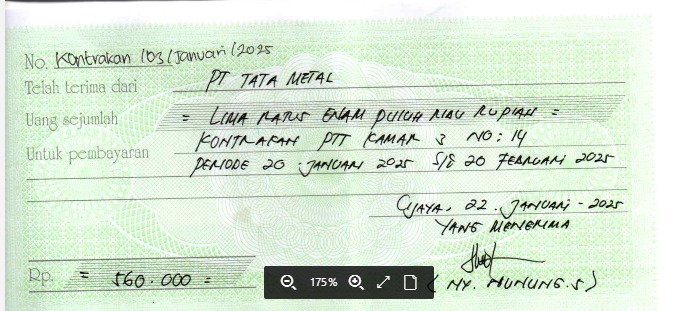 No. Kontrakan /03/Januari/2025
Telah terima dari PT TATA METAL
Uang sejumlah = LIMA RATUS ENAM PULUH RIBU RUPIAH =
Untuk pembayaran KONTRAKAN PTT KAMAR 3 NO: 14
PERIODE 20 JANUARI 2025 S/D 20 FEBRUARI 2025
CIJAYA, 22. JANUARI - 2025
YANG MENERIMA
Rp. = 560.000 =
175%
(NY. NUNUNG.S)